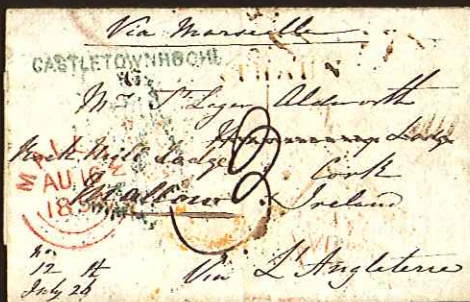 Via Marseille
CASTLETOWNROCHE
Mrs St Leger Aldworth
Lodge
Rock Mill Lodge Cork
Mallow Ireland
AU 16
18
No
12 H
July 26
Via L'Angleterre